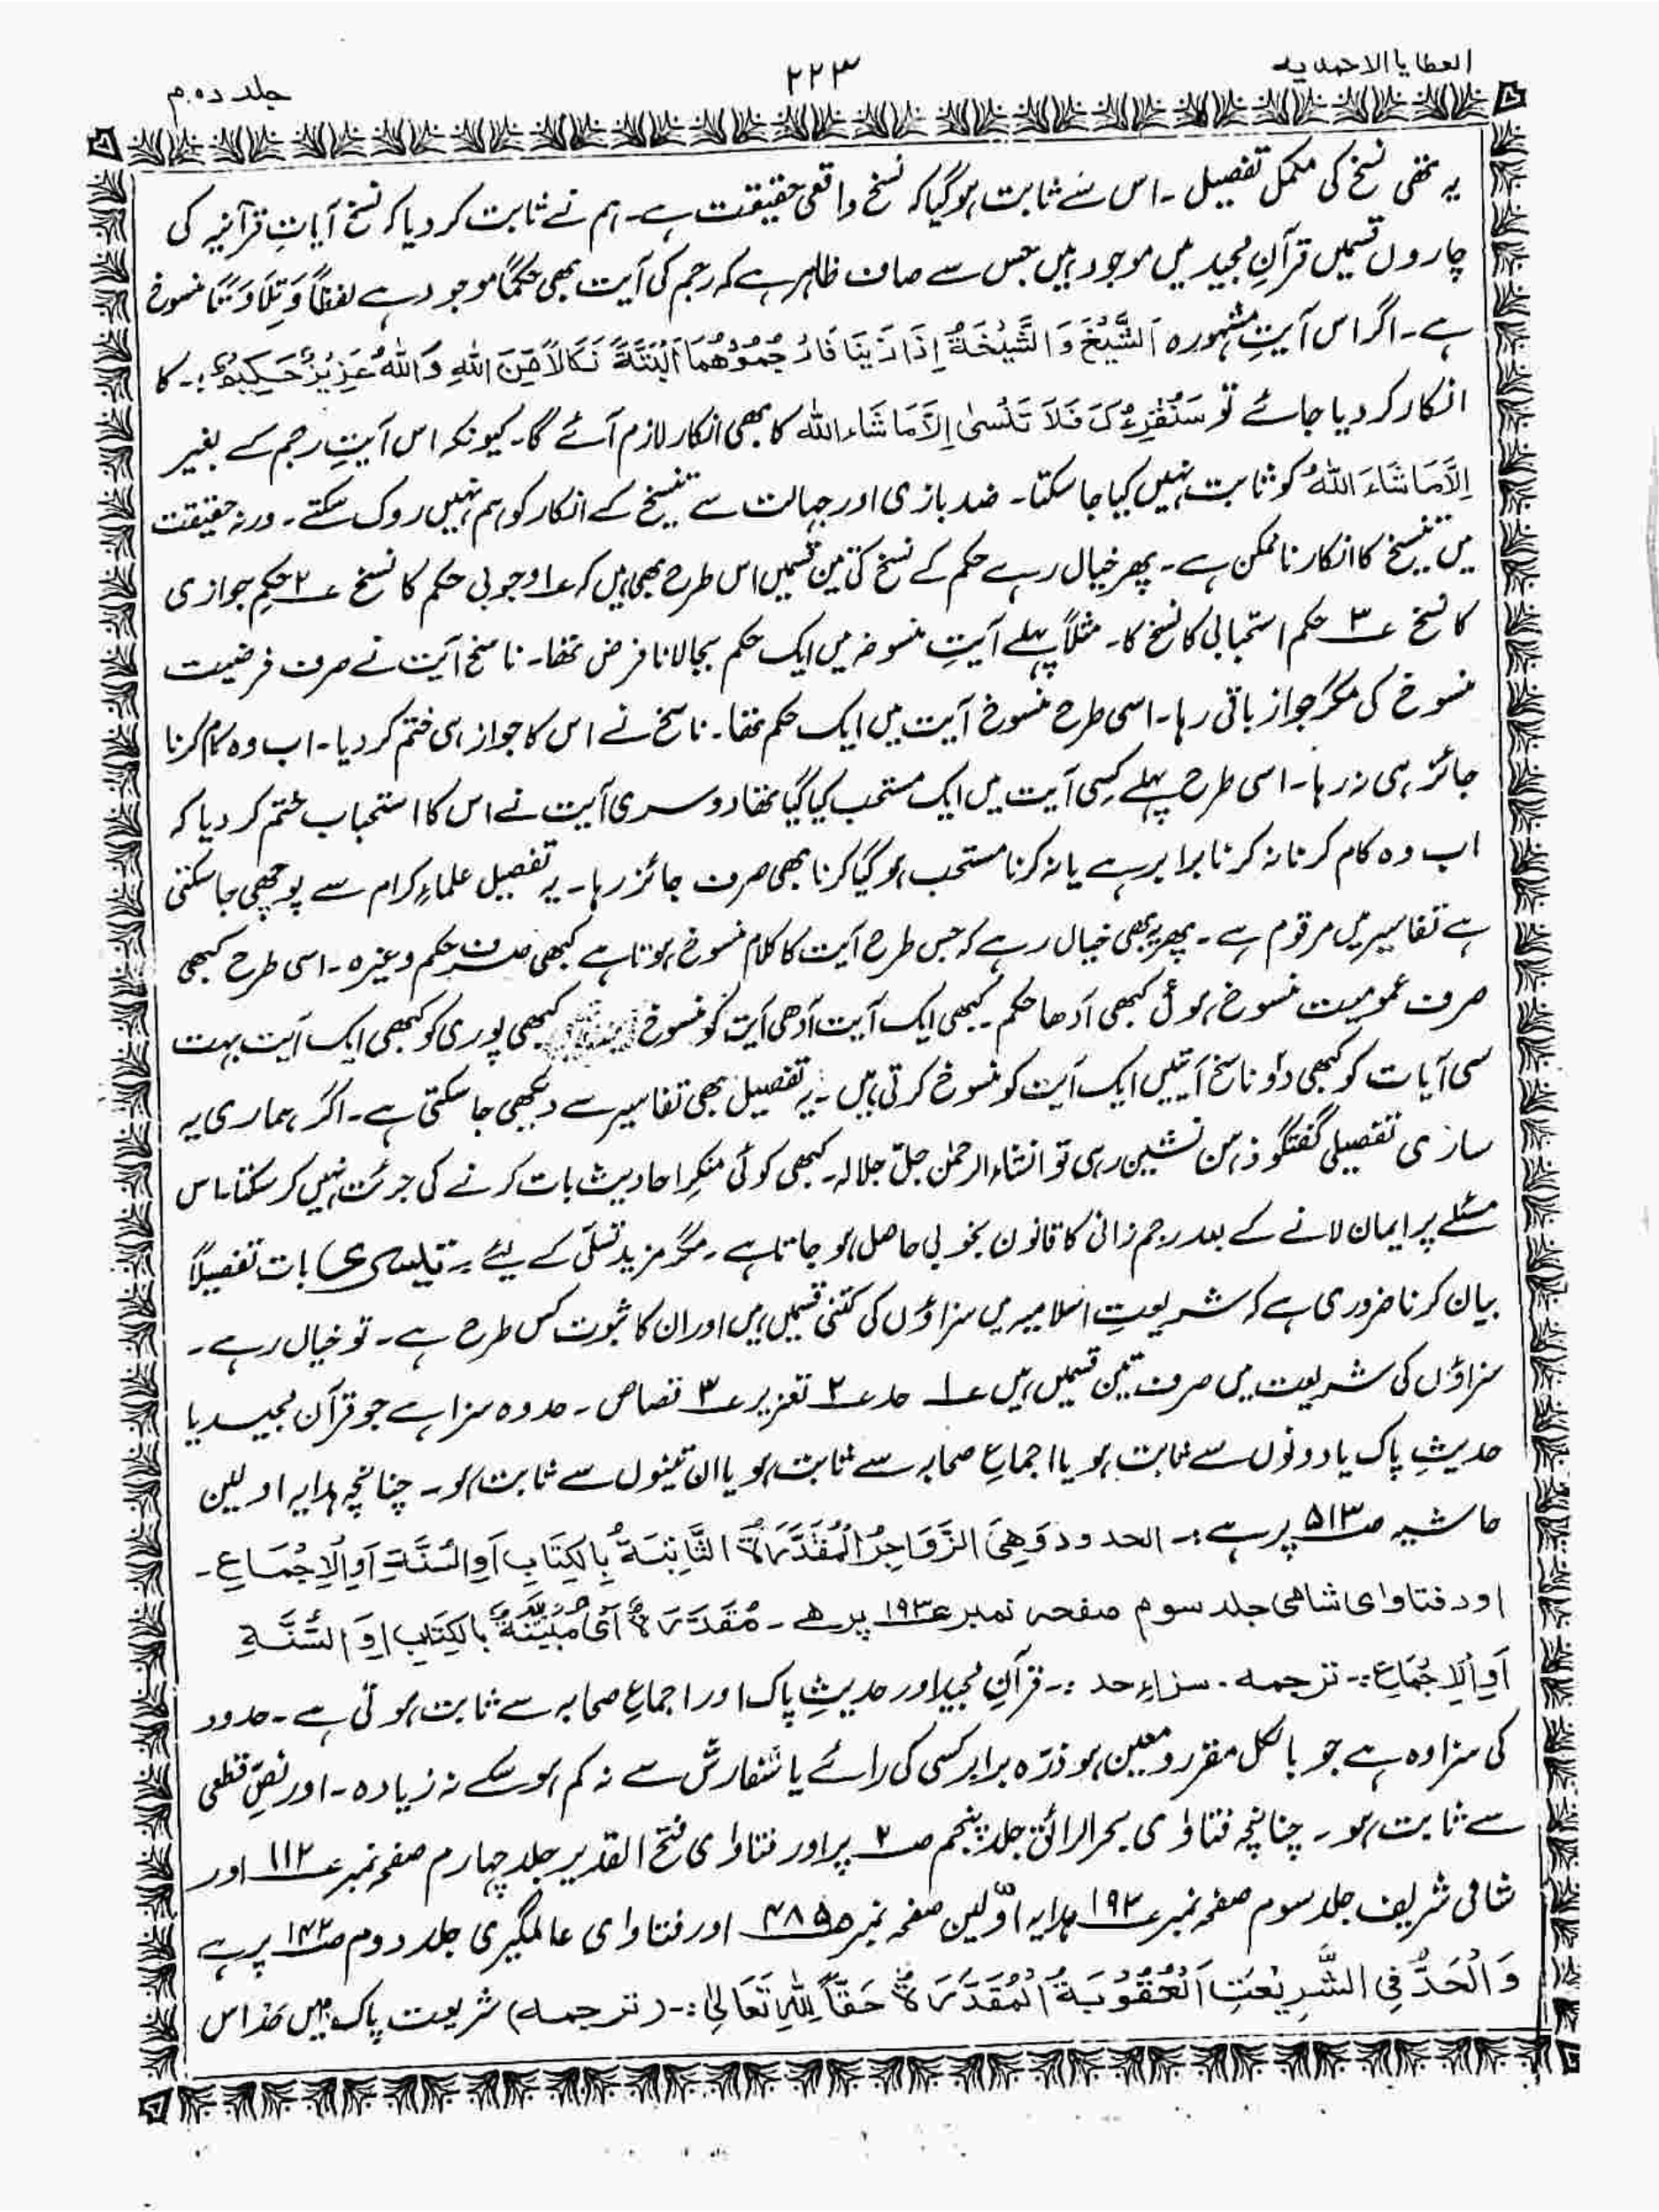 العطایا الاحمدیہ
۲۲۳
جلد دوم
یہ تھی نسخ کی مکمل تفصیل ۔ اس سے ثابت ہوگیا کہ نسخ واقعی حقیقت ہے۔ ہم نے ثابت کر دیا کہ نسخ آیاتِ قرآنیہ کی
چاروں قسمیں قرآنِ مجید میں موجود ہیں جس سے صاف ظاہر ہے کہ رجم کی آیت بھی حکمًا موجود ہے لفظاً وَتِلَاوَتًا منسوخ
ہے۔ اگر اس آیتِ مشہورہ اَلشَّیْخَ وَالشَّیْخَةُ اِذَا زَنَیَا فَارْجُمُوْهُمَا اَلْبَتَّةَ نَکَالًا مِّنَ اللهِ وَاللهُ عَزِیْزٌ حَکِیْمٌ ؛۔ کا
انکار کر دیا جائے تو سَنُقْرِءُکَ فَلَا تَنْسٰی اِلَّا مَا شَاءَ اللہ کا بھی انکار لازم آئے گا۔ کیونکہ اس آیتِ رجم کے بغیر
اِلَّا مَا شَاءَ اللهُ کو ثابت نہیں کیا جا سکتا۔ ضد بازی اور جہالت سے تنسیخ کے انکار کو ہم نہیں روک سکتے۔ ورنہ حقیقت
میں تنسیخ کا انکار ناممکن ہے۔ پھر خیال رہے حکم کے نسخ کی تین قسمیں اس طرح بھی ہیں کہ ؏۱ وجوبی حکم کا نسخ ؏۲ حکمِ جوازی
کا نسخ ؏۳ حکم استحبابی کا نسخ کا۔ مثلاً پہلے آیتِ منسوخہ میں ایک حکم بجالانا فرض تھا۔ ناسخ آیت نے صرف فرضیت
منسوخ کی مگر جواز باقی رہا۔ اسی طرح منسوخ آیت میں ایک حکم تھا۔ ناسخ نے اس کا جواز ہی ختم کر دیا۔ اب وہ کام کرنا
جائز ہی نہ رہا۔ اسی طرح پہلے کسی آیت میں ایک مستحب کیا گیا تھا دوسری آیت نے اس کا استحباب ختم کر دیا کہ
اب وہ کام کرنا نہ کرنا برابر ہے یا نہ کرنا مستحب ہو گیا کرنا بھی صرف جائز رہا۔ یہ تفصیل علماءِ کرام سے پوچھی جا سکتی
ہے تفاسیر میں مرقوم ہے۔ پھر یہ بھی خیال رہے کہ جس طرح آیت کا کلام منسوخ ہوتا ہے کبھی صرف حکم وغیرہ۔ اسی طرح کبھی
صرف عمومیت منسوخ ہوئی کبھی آدھا حکم۔ کبھی ایک آیت آدھی آیت کو منسوخ کبھی پوری کو کبھی ایک آیت بہت
سی آیات کو کبھی دو ناسخ آیتیں ایک آیت کو منسوخ کرتی ہیں۔ یہ تفصیل بھی تفاسیر سے دیکھی جا سکتی ہے۔ اگر ہماری یہ
سازی تفصیلی گفتگو ذہن نشین رہی تو انشاء الرحمٰن جلّ جلالہ۔ کبھی کوئی منکرِ احادیث بات کرنے کی جرئت نہیں کر سکتا۔ اس
مسئلے پر ایمان لانے کے بعد رجم زانی کا قانون بخوبی حاصل ہو جاتا ہے۔ مگر مزید تسلّی کے لیئے ۔ تیسری بات تفصیلاً
بیان کرنا ضروری ہے کہ شریعتِ اسلامیہ میں سزاؤں کی کتنی قسمیں ہیں اور ان کا ثبوت کس طرح ہے۔ تو خیال رہے۔
سزاؤں کی شریعت میں صرف تین قسمیں ہیں ؏۱ حد ؏۲ تعزیر ؏۳ قصاص ۔ حد وہ سزا ہے جو قرآن مجید یا
حدیثِ پاک یا دونوں سے ثابت ہو یا اجماعِ صحابہ سے ثابت ہو یا ان تینوں سے ثابت ہو۔ چنانچہ ہدایہ اولین
حاشیہ صـ۵۱۳ پر ہے:۔ الحدود وَهِیَ الزَّوَاجِرُ الْمُقَدَّرَةُ الثَّابِتَةُ بِالْکِتَابِ اَوِ السُّنَّةِ اَوِ الْاِجْمَاعِ۔
اور فتاوای شامی جلد سوم صفحہ نمبر ؏۱۹۳ پر ہے ۔ مُقَدَّرَةٌ اَیْ مُبَیَّنَةٌ بِالْکِتَابِ اَوِ السُّنَّةِ
اَوِ الْاِجْمَاعِ:۔ ترجمہ۔ سزاءِ حد :۔ قرآنِ مجید اور حدیثِ پاک اور اجماعِ صحابہ سے ثابت ہوتی ہے۔ حدود
کی سزا وہ ہے جو بالکل مقرر و معین ہو ذرّہ برابر کسی کی رائے یا سفارش سے نہ کم ہو سکے نہ زیادہ۔ اور نصِ قطعی
سے ثابت ہو۔ چنانچہ فتاوٰی بحر الرائق جلد پنجم صـ۲ پر اور فتاوٰی فتح القدیر جلد چہارم صفحہ نمبر ؏۱۱۲ اور
شامی شریف جلد سوم صفحہ نمبر ؏۱۹۳ ہدایہ اوّلین صفحہ نمبر صـ۴۸۵ اور فتاوٰی عالمگیری جلد دوم صـ۱۴۲ پر ہے
وَالْحَدُّ فِی الشَّرِیْعَتِ اَلْعُقُوْبَةُ الْمُقَدَّرَةُ حَقًّا لِلّٰهِ تَعَالٰی:۔ (ترجمہ) شریعت پاک میں حد اس